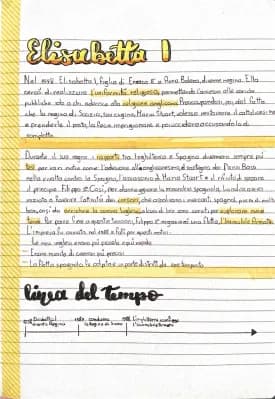 Elisabetta I
Nel 1558 Elisabetta I, figlia di Enrico 8° e Anna Bolena, divenne regina. Ella
cercò di realizzare l'uniformità religiosa, permettendo l'accesso alle cariche
pubbliche solo a chi aderiva alla religione anglicana. Preoccupandosi, poi, del fatto
che la regina di Scozia, sua cugina, Maria Stuart, volesse restaurare il cattolicesimo
e prenderle il posto, la fece imprigionare e poi uccidere accusandola di
complotto.
Durante il suo regno i rapporti tra Inghilterra e Spagna divennero sempre più
tesi per vari motivi come l'adesione all'anglicanesimo, il sostegno dei Paesi Bassi
nella rivolta contro la Spagna, l'uccisione di Maria Stuart e il rifiuto di sposare
il principe Filippo 2°. Così, per danneggiare la monarchia spagnola, la
a favorire l'attività dei corsari, che assalivano i mercanti spagnoli,
arricchire la corona inglese, alcuni di loro sono esplorare nuove
terre. Per porre fine a queste Filippo 2° una flotta, l'Invincibile Armata.
L'impresa fu nel 1588 e fallì per questi motivi:
- Le navi inglesi erano più piccole e più veloci
- Erano munite di cannoni più precisi
- La flotta spagnola fu colpita e in parte distrutta da una tempesta
linea del tempo
1558 Elisabetta I diventa Regina
1587 condanna la Regina di Scozia
1588 l'Inghilterra sconfigge l'Invincibile Armata